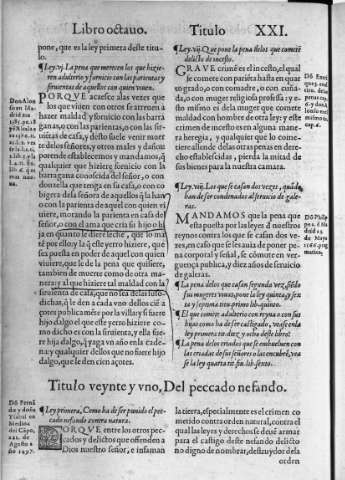 Libro octauo. Titulo XXI.
pone, que es la ley primera deste titu-
lo.
¶ Ley.vj. La pena que merecen los que hizie-
ren adulterio y fornicio con las parientas y
siruientas de aquellos con quien viuen.
PORQVE acaesce a las vezes que
los que viuen con otros se atreuen a
hazer maldad y fornicio con las barra
ganas, o con las parientas, o con las sir
uientas de casa, y desto suele venir muer
te de los señores, y otros males y daños:
porende establescemos y mandamos, que
qualquier que hiziere fornicio con la
barragana conoscida del señor, o con
donzella que tenga en su casa, o con co
bigera de la señora de aquellos que la han
o con la parienta de aquel con quien vi
uiere, morando la parienta en casa del
señor, o con el ama que cria su hijo o hi
ja en quanto le diere leche, que lo ma
te por ello: y la que yerro hiziere, que
sea puesta en poder de aquel con quien
viuiere, que le de la pena que quisiere,
tambien de muerte como de otra ma-
nera: y al que hiziere tal maldad con la
siruienta de casa, que no sea de las suso
dichas, que le den a cada vno dellos cient a
çotes publicamente por la villa: y si fuere
hijo dalgo el que este yerro hiziere co
mo dicho es con la siruienta, y ella fue-
re hija dalgo, que yaga vn año en la cade-
na: y qualquier dellos que no fuere hijo
dalgo, que le den cien açotes.
¶ Ley.vij. Que pone la pena de los que cometen
delicto de incesto.
GRAVE crimen es el incesto, el qual
se comete con parienta hasta en quar
to grado, o con comadre, o con cuña-
da, o con muger religiosa professa: y es-
to mismo es de la muger que comete
maldad con hombre de otra ley: y este
crimen de incesto es en alguna mane-
ra heregia, y qualquier que lo come-
tiere allende de las otras penas en dere-
cho establescidas, pierda la mitad de
sus bienes para la nuestra camara.
¶ Ley.viij. Los que se casan dos vezes, quando
han de ser condenados al seruicio de gale-
ras.
MANDAMOS que la pena que
esta puesta por las leyes de nuestros
reynos contra los que se casan dos ve-
zes, en caso que se les auia de poner pe-
na corporal y señal, se comute en ver-
guença publica, y diez años de seruicio
de galeras.
¶ La pena de los que casan segunda vez, siendo
sus mugeres viuas, pone la ley quinta, y sex
ta y septima en el primo lib. quinto.
¶ El que comete adulterio con reyna o con sus
hijas como ha de ser castigado, vease en la
ley primera en diez y ocho deste libro.
¶ La pena de los criados que se embueluen con
las criadas de sus señores o las encubren, vea
se la ley quarta tit. fin. lib. sexto.
Titulo veynte y vno, Del peccado nefando.
¶ Ley primera, Como ha de ser punido el pec-
cado nefando contra natura.
PORQVE entre los otros pec-
cados y delictos que offenden a
Dios nuestro señor, e infaman
la tierra, especialmente es el crimen co
metido contra orden natural, contra el
qual las leyes y derechos se deuen armar
para el castigo deste nefando delicto
no digno de nombrar, destruydor de la
orden